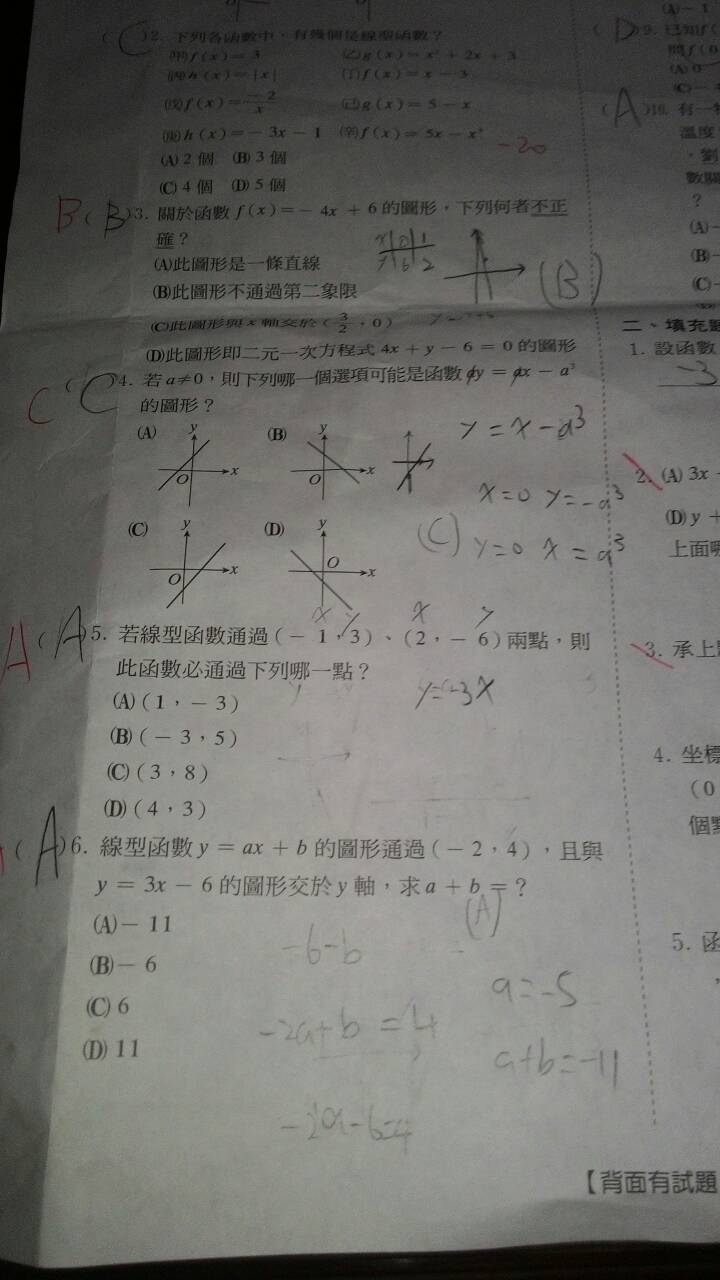 (C)2. 下列各函數中,有幾個是線型函數?
(甲)f(x)=3 (乙)g(x)=x²+2x+3
(丙)h(x)=|x| (丁)f(x)=x-3
(戊)f(x)=-2/x (己)g(x)=5-x
(庚)h(x)=-3x-1 (辛)f(x)=5x-x²
-20
(A)2個 (B)3個
(C)4個 (D)5個
B (B)3. 關於函數f(x)=-4x+6的圖形,下列何者不正
確?
x 0 1
y 6 2
(A)此圖形是一條直線
(B)此圖形不通過第二象限
(B)
(C)此圖形與x軸交於(3/2,0)
(D)此圖形即二元一次方程式4x+y-6=0的圖形
C (C)4. 若a≠0,則下列哪一個選項可能是函數ay=ax-a³
的圖形?
(A) y O x (B) y O x
y=x-a³
x=0 y=-a³
(C) y O x (D) y O x
(C) y=0 x=a³
A (A)5. 若線型函數通過(-1,3)、(2,-6)兩點,則
x y x y
此函數必通過下列哪一點?
y=-3x
(A)(1,-3)
(B)(-3,5)
(C)(3,8)
(D)(4,3)
(A)6. 線型函數y=ax+b的圖形通過(-2,4),且與
y=3x-6的圖形交於y軸,求a+b=?
(A)
(A)-11
(B)-6
(C)6
(D)11
-6-b
a=-5
-2a+b=4
a+b=-11
-2a-6=4
【背面有試題
(A)-1
(D)9. 已知f(
問f(0
(A)0
(C)-4
(A)10. 有一
溫度
,劉
數關
?
(A)-
(B)-
(C)-
二、填充題
1. 設函數
-3
2. (A)3x
(D)y+
上面哪
3. 承上
4. 坐標
(0
個
5. 函